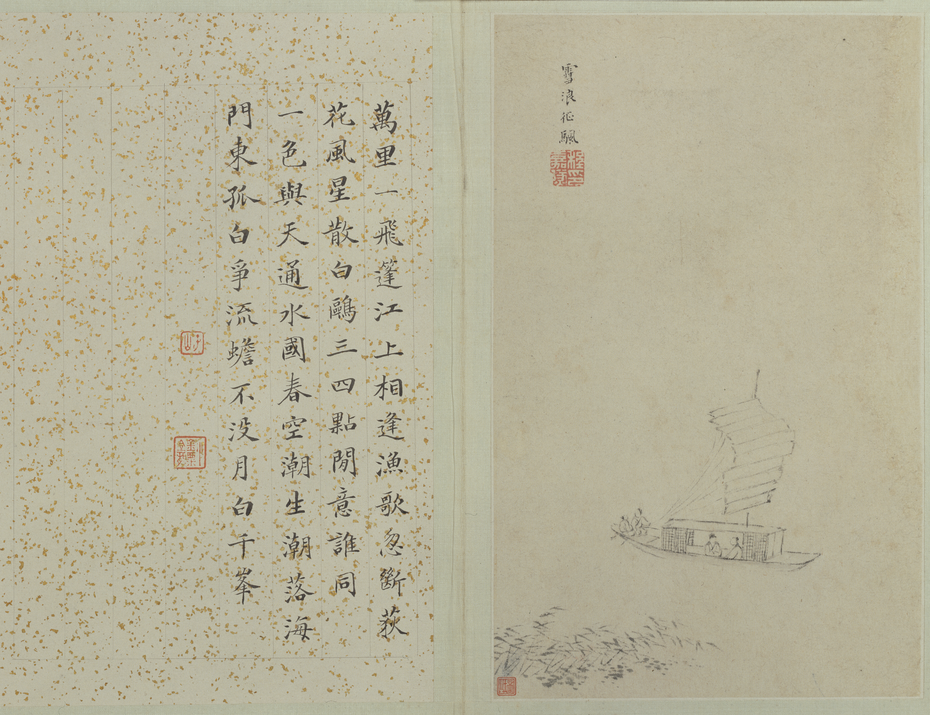 雪浪征颿
萬里一飛蓬江上相逢漁歌忽斷荻
花風星散白鷗三四點閒意誰同
一色與天通水國春空潮生潮落海
門東孤白爭流蟾不没月白千峯